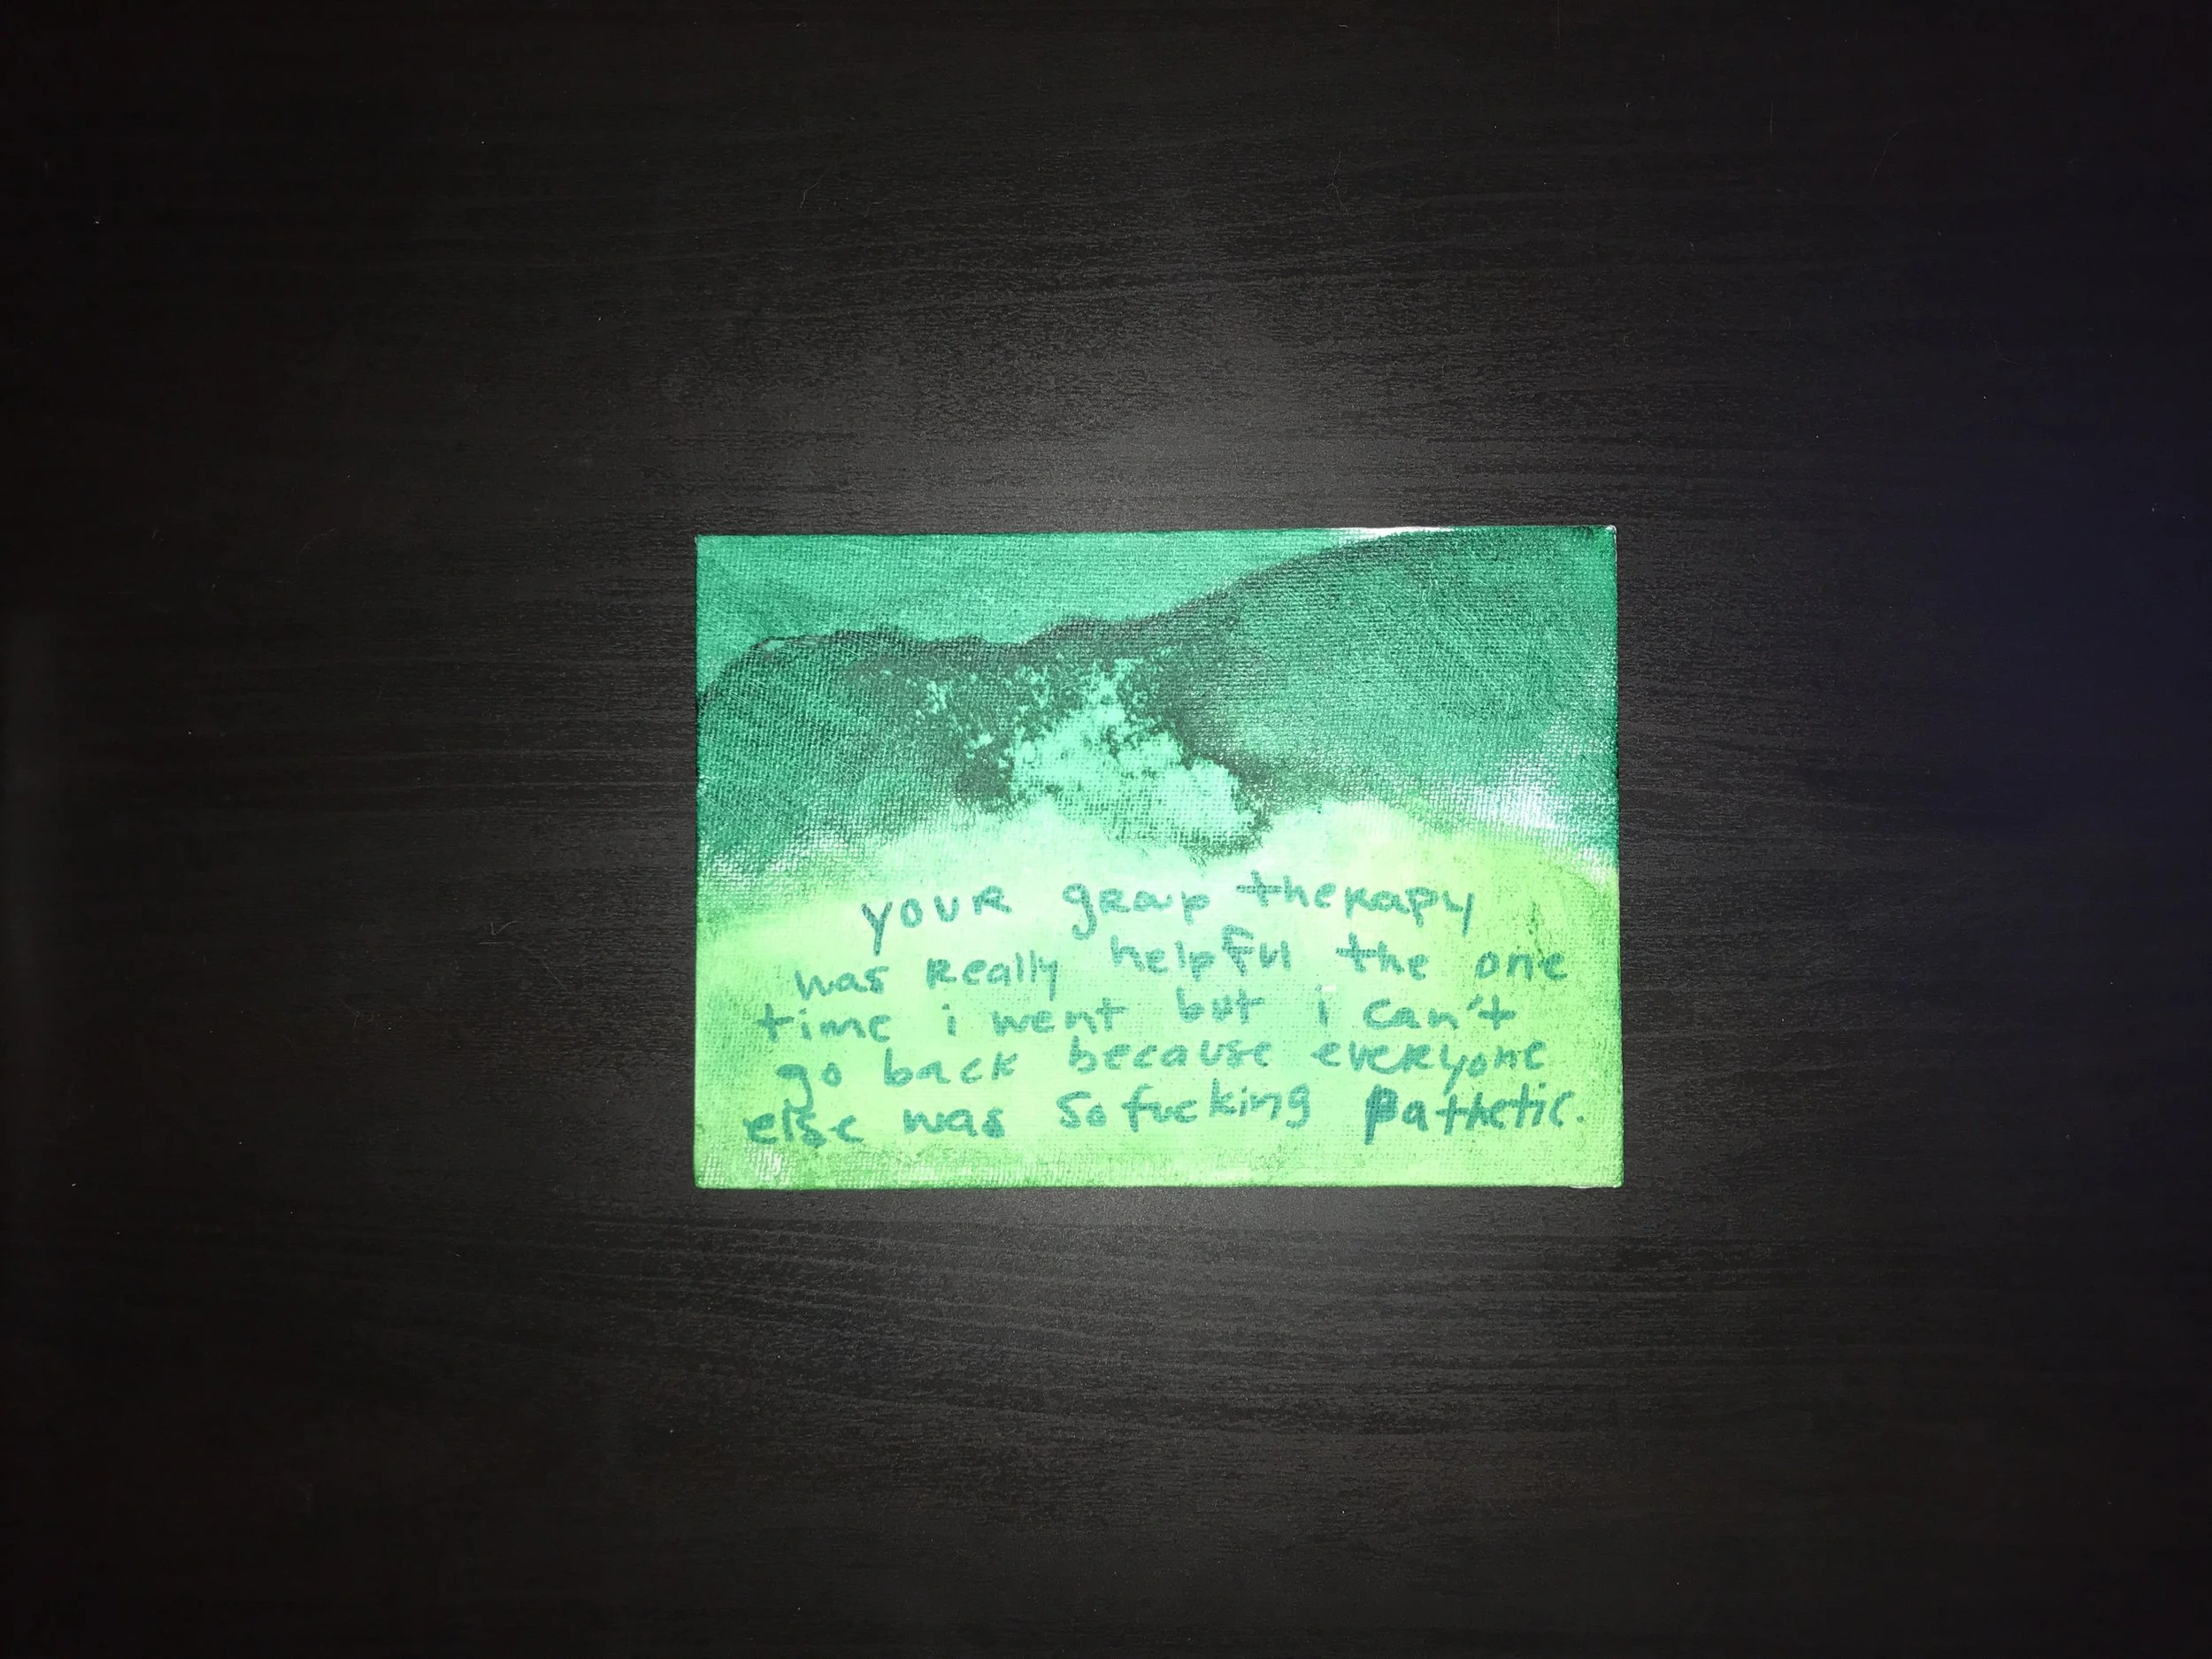 your group therapy
was really helpful the one
time i went but i can't
go back because everyone
else was so fucking pathetic.